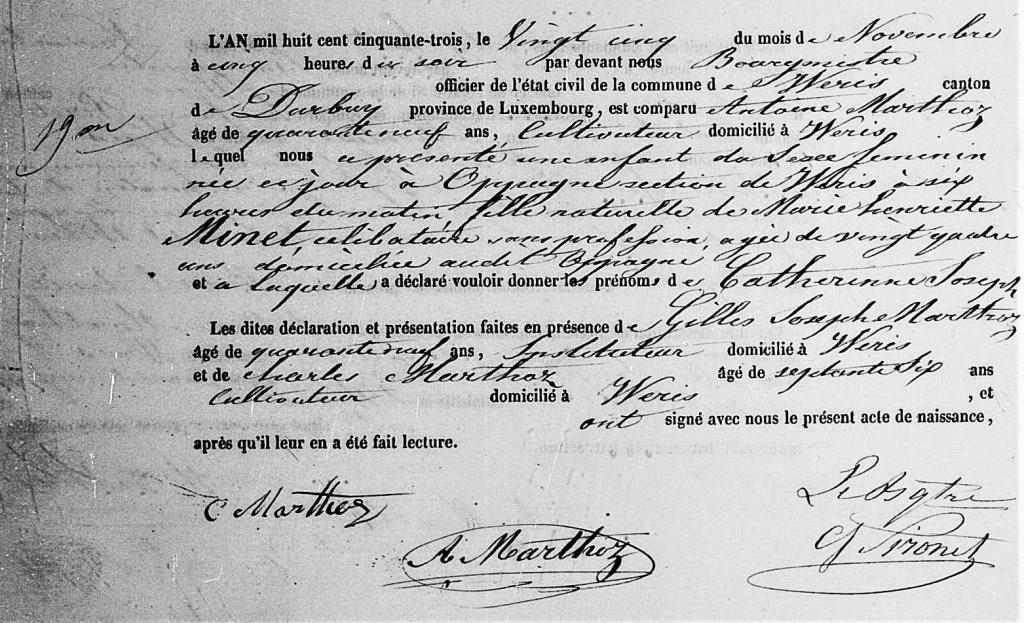 L'AN mil huit cent cinquante-trois, le Vingt cinq du mois de Novembre
à cinq heures du soir par devant nous Bourgmestre
officier de l'état civil de la commune de Weris canton
de Durbuy province de Luxembourg, est comparu Antoine Marthoz
19me
âgé de quarante neuf ans, Cultivateur domicilié à Weris
lequel nous a présenté une enfant du Sexe feminin
née ce jour à Oppagne section de Weris à six
heures du matin, fille naturelle de Marie henriette
Minet, celibataire sans profession, agée de vingt quatre
ans domiciliée audit Oppagne
et a laquelle a déclaré vouloir donner les prénoms de Catherinne Joseph
Les dites déclaration et présentation faites en présence de Gilles Joseph Marthoz
âgé de quarante neuf ans, Instituteur domicilié à Weris
et de Charles Marthoz âgé de septante Six ans
Cultivateur domicilié à Weris , et
ont signé avec nous le présent acte de naissance,
après qu'il leur en a été fait lecture.
C Marthoz
Le Bgtre
A Marthoz